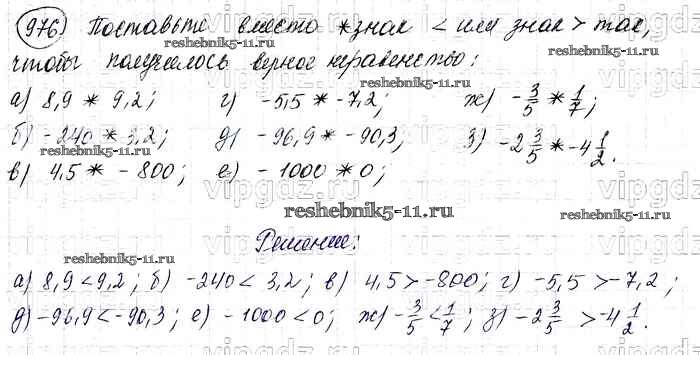 976) Поставьте вместо * знак < или знак > так,
чтобы получилось верное неравенство:
а) 8,9 * 9,2; г) -5,5 * -7,2; ж) -3/5 * 1/7;
б) -240 * 3,2; д) -96,9 * -90,3; з) -2 3/5 * -4 1/2.
в) 4,5 * -800; е) -1000 * 0;
Решение:
а) 8,9 < 9,2; б) -240 < 3,2; в) 4,5 > -800; г) -5,5 > -7,2;
д) -96,9 < -90,3; е) -1000 < 0; ж) -3/5 < 1/7; з) -2 3/5 > -4 1/2.
reshebnik5-11.ru
reshebnik5-11.ru
reshebnik5-11.ru
reshebnik5-11.ru
reshebnik5-11.ru
reshebnik5-11.ru
reshebnik5-11.ru
vipgdz.ru